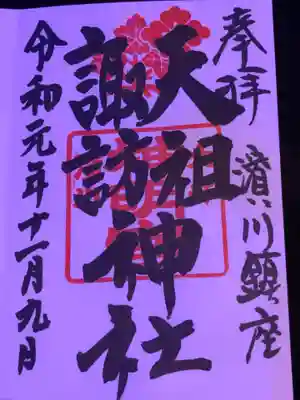 奉拝
濱川鎮座
天祖
諏訪神社
令和元年十一月九日